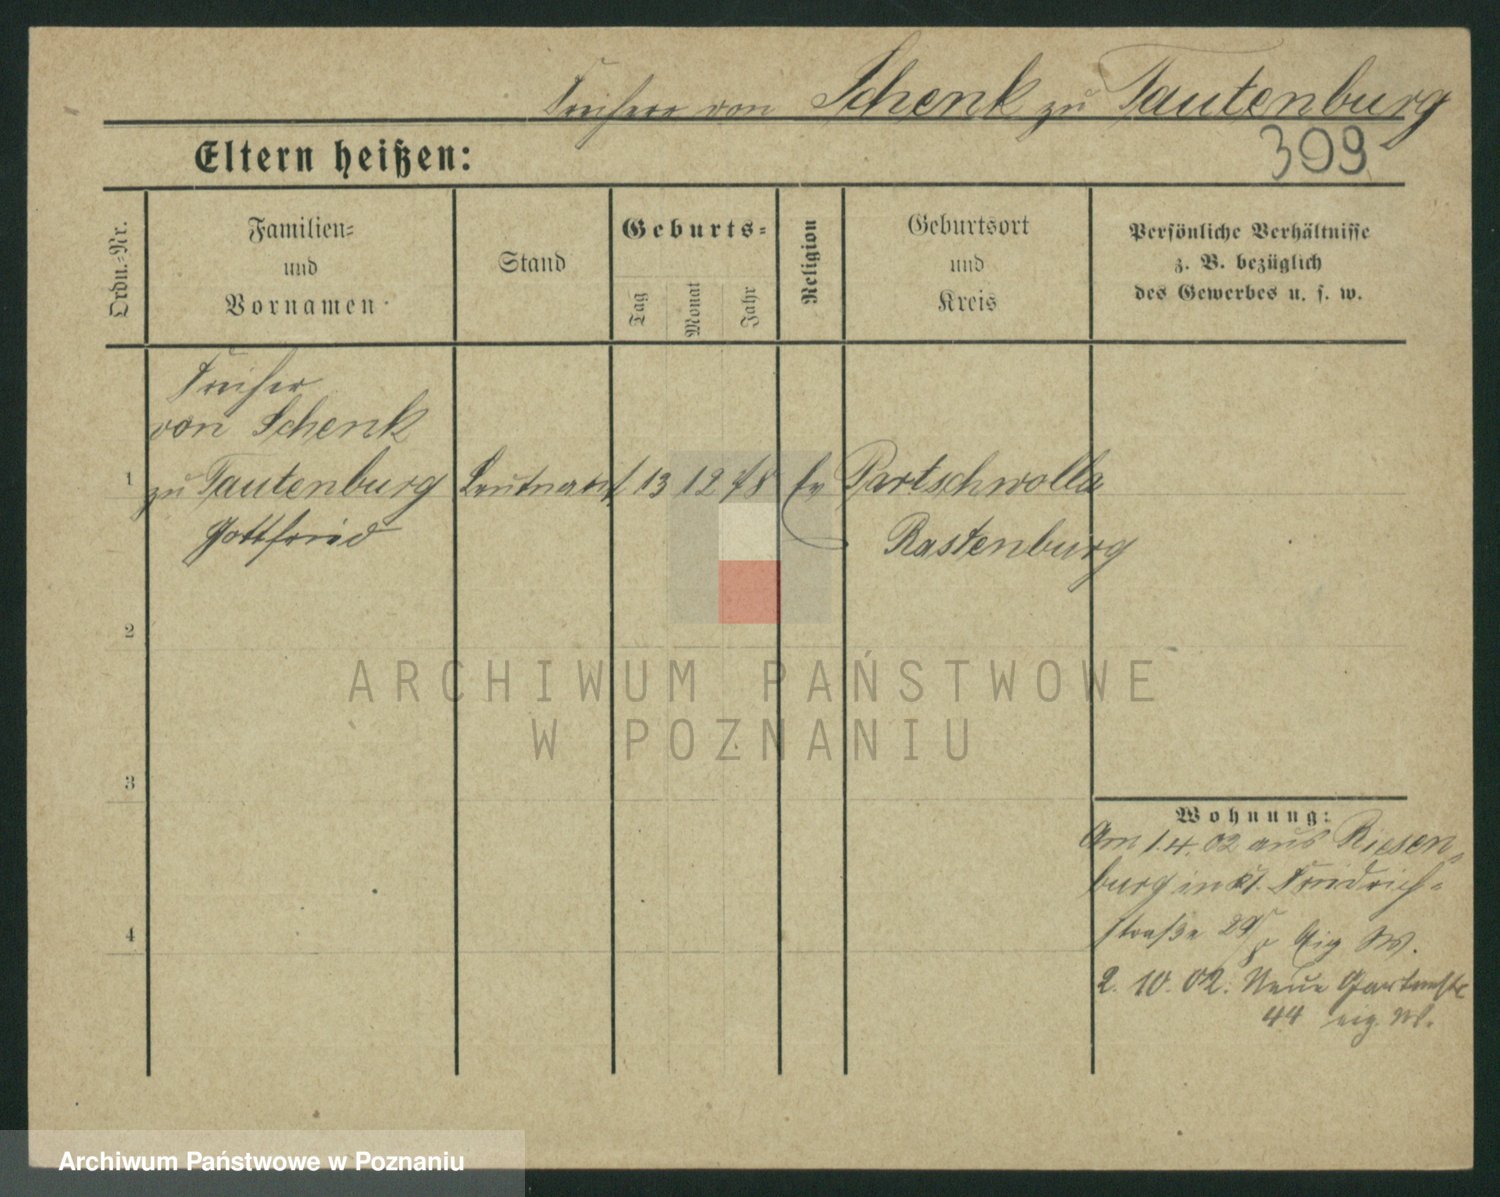 Freiherr von Schenk zu Tautenburg
309
Eltern heißen:
Ordn.-Nr.
Familien-
und
Vornamen
Stand
Geburts-
Tag
Monat
Jahr
Religion
Geburtsort
und
Kreis
Persönliche Verhältnisse
z. B. bezüglich
des Gewerbes u. s. w.
Freiherr
von Schenk
1 zu Tautenburg Leutnant 13 12 78 Ev Partschwolla
Gottfried Rastenburg
2
3
4
Wohnung:
Am 1.4.02 aus Riesen-
burg in Kl. Friedrich-
straße 29 Eig W.
2. 10. 02. Neue Gartenstr
44 eig. W.
ARCHIWUM PAŃSTWOWE
W POZNANIU
Archiwum Państwowe w Poznaniu